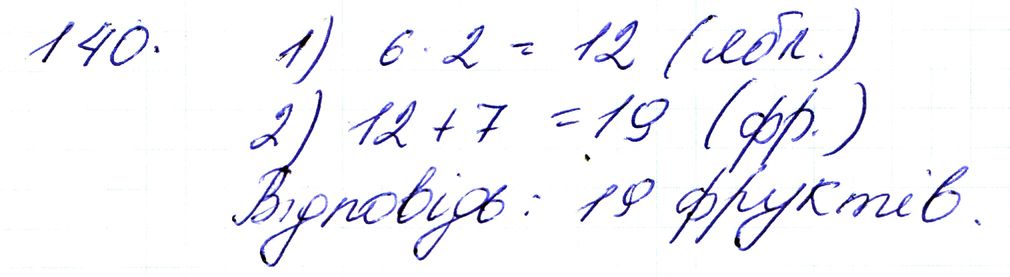 140. 1) 6 · 2 = 12 (ябл.)
2) 12 + 7 = 19 (фр.)
Відповідь: 19 фруктів.